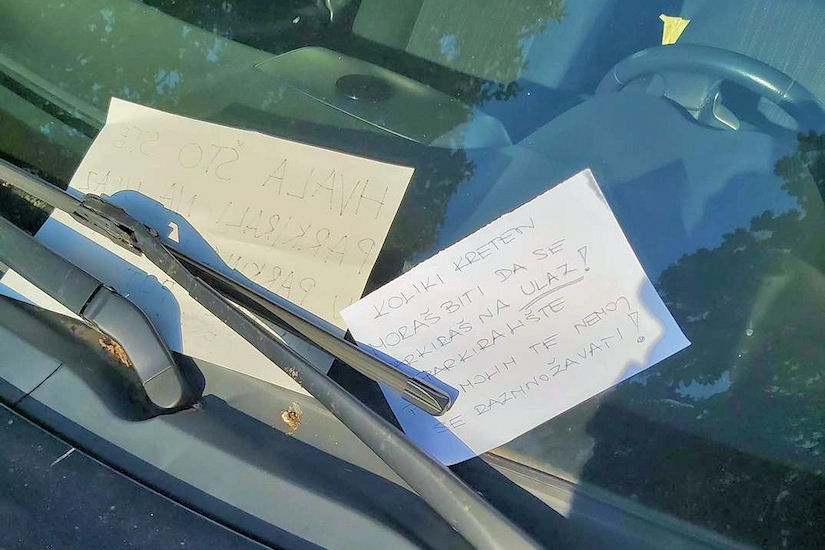 HVALA ŠTO STE
PARKIRALI NA ULAZ
U PARKING
KOLIKI KRETEN
MORAŠ BITI DA SE
PARKIRAŠ NA ULAZ!
PARKIRALIŠTE
MOLIM TE NEMOJ
SE RAZMNOŽAVATI!